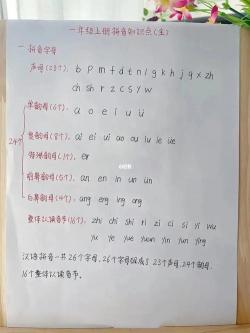 一年级上册拼音知识点(全)
一 拼音字母
声母(23个): b p m f d t n l g k h j q x zh
ch sh r z c s y w
单韵母(6个): a o e i u ü
24个
复韵母(8个): ai ei ui ao ou iu ie üe
特殊韵母(1个): er
前鼻韵母(5个): an en in un ün
后鼻韵母(4个): ang eng ing ong
整体认读音节(16个): zhi chi shi ri zi ci si yi wu
yu ye yue yuan yin yun ying
汉语拼音一共26个字母,26个字母组成了23个声母,24个韵母,
16个整体认读音节。